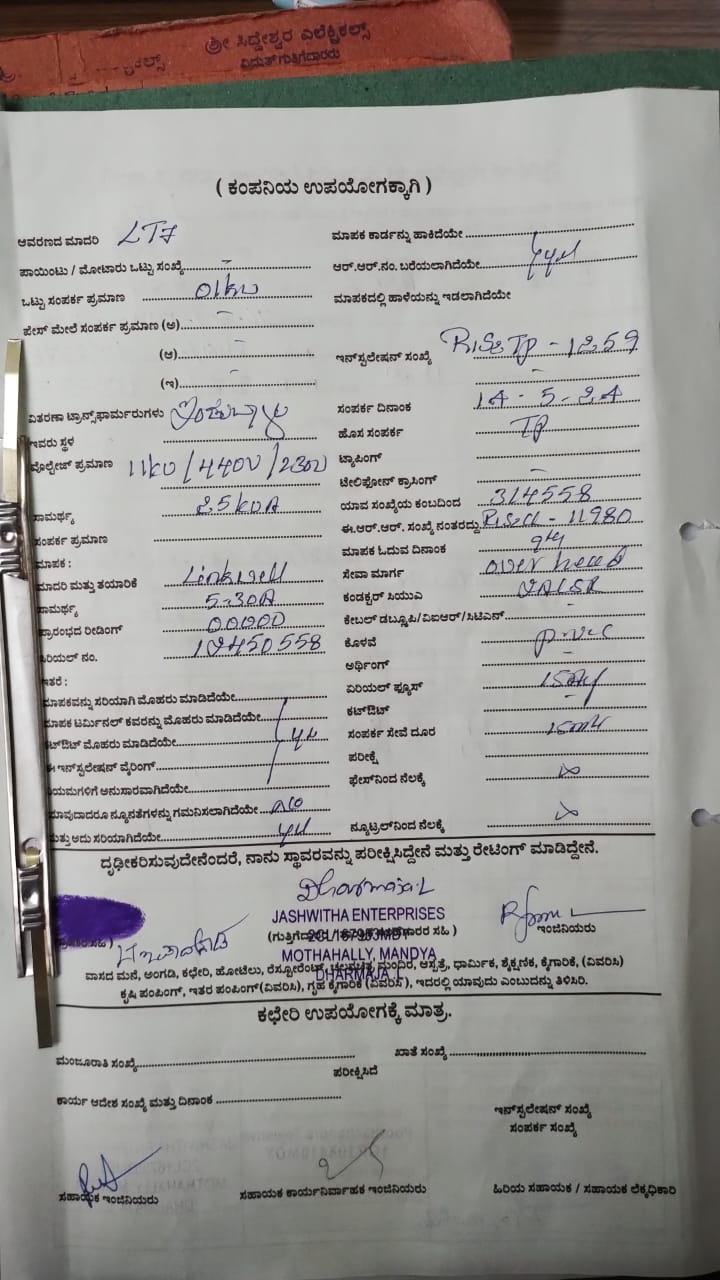 ಶ್ರೀ ಸಿದ್ದೇಶ್ವರ ಎಲೆಕ್ಟ್ರಿಕಲ್ಸ್
ವಿದ್ಯುತ್ ಗುತ್ತಿಗೆದಾರರು
( ಕಂಪನಿಯ ಉಪಯೋಗಕ್ಕಾಗಿ )
ಆವರಣದ ಮಾದರಿ LT7
ಮಾಪಕ ಕಾರ್ಡನ್ನು ಹಾಕಿದೆಯೇ
ಪಾಯಿಂಟು / ಮೋಟಾರು ಒಟ್ಟು ಸಂಖ್ಯೆ -
ಆರ್.ಆರ್.ನಂ. ಬರೆಯಲಾಗಿದೆಯೇ
ಒಟ್ಟು ಸಂಪರ್ಕ ಪ್ರಮಾಣ 01kw
ಮಾಪಕದಲ್ಲಿ ಹಾಳೆಯನ್ನು ಇಡಲಾಗಿದೆಯೇ
ಫೇಸ್ ಮೇಲೆ ಸಂಪರ್ಕ ಪ್ರಮಾಣ (ಅ) -
(ಆ) -
ಇನ್‌ಸ್ಟಲೇಷನ್ ಸಂಖ್ಯೆ RISETP - 1259
(ಇ) -
ವಿತರಣಾ ಟ್ರಾನ್ಸ್‌ಫಾರ್ಮರುಗಳು
ಸಂಪರ್ಕ ದಿನಾಂಕ 14-5-24
ಇವರು ಸ್ಥಳ
ಹೊಸ ಸಂಪರ್ಕ TP
ವೊಲ್ಟೇಜ್ ಪ್ರಮಾಣ 11kv/440v/230v
ಟ್ಯಾಪಿಂಗ್
ಟೆಲಿಫೋನ್ ಕ್ರಾಸಿಂಗ್ -
ಸಾಮರ್ಥ್ಯ 25kvA
ಯಾವ ಸಂಖ್ಯೆಯ ಕಂಬದಿಂದ 314558
ಸಂಪರ್ಕ ಪ್ರಮಾಣ
ಈ.ಆರ್.ಆರ್. ಸಂಖ್ಯೆ ನಂತರದ್ದು - 11980
ಮಾಪಕ :
ಮಾಪಕ ಓದುವ ದಿನಾಂಕ 9th
ಮಾದರಿ ಮತ್ತು ತಯಾರಿಕೆ Linkwell
ಸೇವಾ ಮಾರ್ಗ over head
ಸಾಮರ್ಥ್ಯ 5-30A
ಕಂಡಕ್ಟರ್ ಸಿಯುಎ
ಪ್ರಾರಂಭದ ರೀಡಿಂಗ್ 00000
ಕೇಬಲ್ ಡಬ್ಲ್ಯೂಪಿ/ವಿಐಆರ್/ಸಿಟಿಎನ್ -
ಸಿರಿಯಲ್ ನಂ. 19450558
ಕೊಳವೆ p.v.c
ಇತರೆ :
ಅರ್ಥಿಂಗ್
ಮಾಪಕವನ್ನು ಸರಿಯಾಗಿ ಮೊಹರು ಮಾಡಿದೆಯೇ
ಏರಿಯಲ್ ಫ್ಯೂಸ್
ಮಾಪಕ ಟರ್ಮಿನಲ್ ಕವರನ್ನು ಮೊಹರು ಮಾಡಿದೆಯೇ
ಕಟ್‌ಔಟ್ -
ಕಟ್‌ಔಟ್ ಮೊಹರು ಮಾಡಿದೆಯೇ
ಸಂಪರ್ಕ ಸೇವೆ ದೂರ 15mtr
ಈ ಇನ್‌ಸ್ಟಲೇಷನ್ ವೈರಿಂಗ್
ಪರೀಕ್ಷೆ
ನಿಯಮಗಳಿಗೆ ಅನುಸಾರವಾಗಿದೆಯೇ
ಫೇಸ್‌ನಿಂದ ನೆಲಕ್ಕೆ ∞
ಯಾವುದಾದರೂ ನ್ಯೂನತೆಗಳನ್ನು ಗಮನಿಸಲಾಗಿದೆಯೇ No
ಮತ್ತು ಅದು ಸರಿಯಾಗಿದೆಯೇ
ನ್ಯೂಟ್ರಲ್‌ನಿಂದ ನೆಲಕ್ಕೆ ∞
ದೃಢೀಕರಿಸುವುದೇನೆಂದರೆ, ನಾನು ಸ್ಥಾವರವನ್ನು ಪರೀಕ್ಷಿಸಿದ್ದೇನೆ ಮತ್ತು ರೇಟಿಂಗ್ ಮಾಡಿದ್ದೇನೆ.
Dharmaja.L
JASHWITHA ENTERPRISES
ಇಂಜಿನಿಯರು
MOTHAHALLY, MANDYA
DHARMAJA L
ವಾಸದ ಮನೆ, ಅಂಗಡಿ, ಕಛೇರಿ, ಹೋಟೆಲು, ರೆಸ್ಟೋರೆಂಟ್, ಚಲನಚಿತ್ರ ಮಂದಿರ, ಆಸ್ಪತ್ರೆ, ಧಾರ್ಮಿಕ, ಶೈಕ್ಷಣಿಕ, ಕೈಗಾರಿಕೆ, (ವಿವರಿಸಿ)
ಕೃಷಿ ಪಂಪಿಂಗ್, ಇತರ ಪಂಪಿಂಗ್(ವಿವರಿಸಿ), ಗೃಹ ಕೈಗಾರಿಕೆ (ವಿವರಿಸಿ), ಇದರಲ್ಲಿ ಯಾವುದು ಎಂಬುದನ್ನು ತಿಳಿಸಿರಿ.
ಕಛೇರಿ ಉಪಯೋಗಕ್ಕೆ ಮಾತ್ರ.
ಮಂಜೂರಾತಿ ಸಂಖ್ಯೆ
ಖಾತೆ ಸಂಖ್ಯೆ
ಪರೀಕ್ಷಿಸಿದೆ
ಕಾರ್ಯ ಆದೇಶ ಸಂಖ್ಯೆ ಮತ್ತು ದಿನಾಂಕ
ಇನ್‌ಸ್ಟಲೇಷನ್ ಸಂಖ್ಯೆ
ಸಂಪರ್ಕ ಸಂಖ್ಯೆ
ಸಹಾಯಕ ಇಂಜಿನಿಯರು
ಸಹಾಯಕ ಕಾರ್ಯನಿರ್ವಾಹಕ ಇಂಜಿನಿಯರು
ಹಿರಿಯ ಸಹಾಯಕ / ಸಹಾಯಕ ಲೆಕ್ಕಾಧಿಕಾರಿ